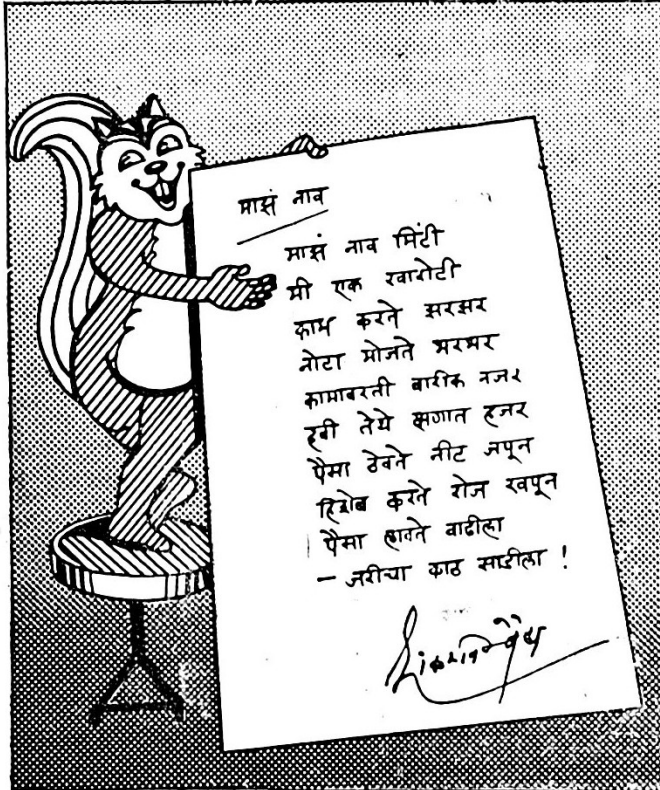 माझं नाव
माझं नाव मिंटी
मी एक खारोटी
काम करते झरझर
नोटा मोजते भरभर
कामावरती बारीक नजर
हवी तेथे क्षणात हजर
पैसा ठेवते नीट जपून
हिशेब करते रोज खपून
पैसा लावते वाढीला
– जरीचा काठ साडीला !